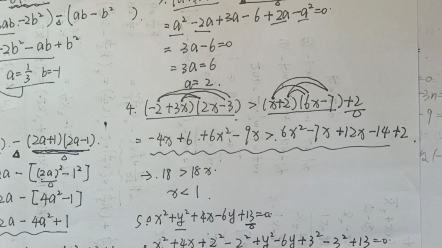 ab-2b²)-(ab-b²
-2b²-ab+b²
a=1/3 b=-1
).-(2a+1)(2a-1).
a-[(2a)²-1²]
2a-[4a²-1]
2a-4a²+1
).
=a²-2a+3a-6+2a-a²=0.
=3a-6=0
=3a=6
a=2.
4. (-2+3x)(2x-3)>(x+2)(6x-7)+2
=-4x+6+6x²-9x>6x²-7x+12x-14+2.
→.18>18x.
x<1.
5.∘x²+y²+4x-6y+13=0
x²+4x+2²-2²+y²-6y+3²-3²+13=0